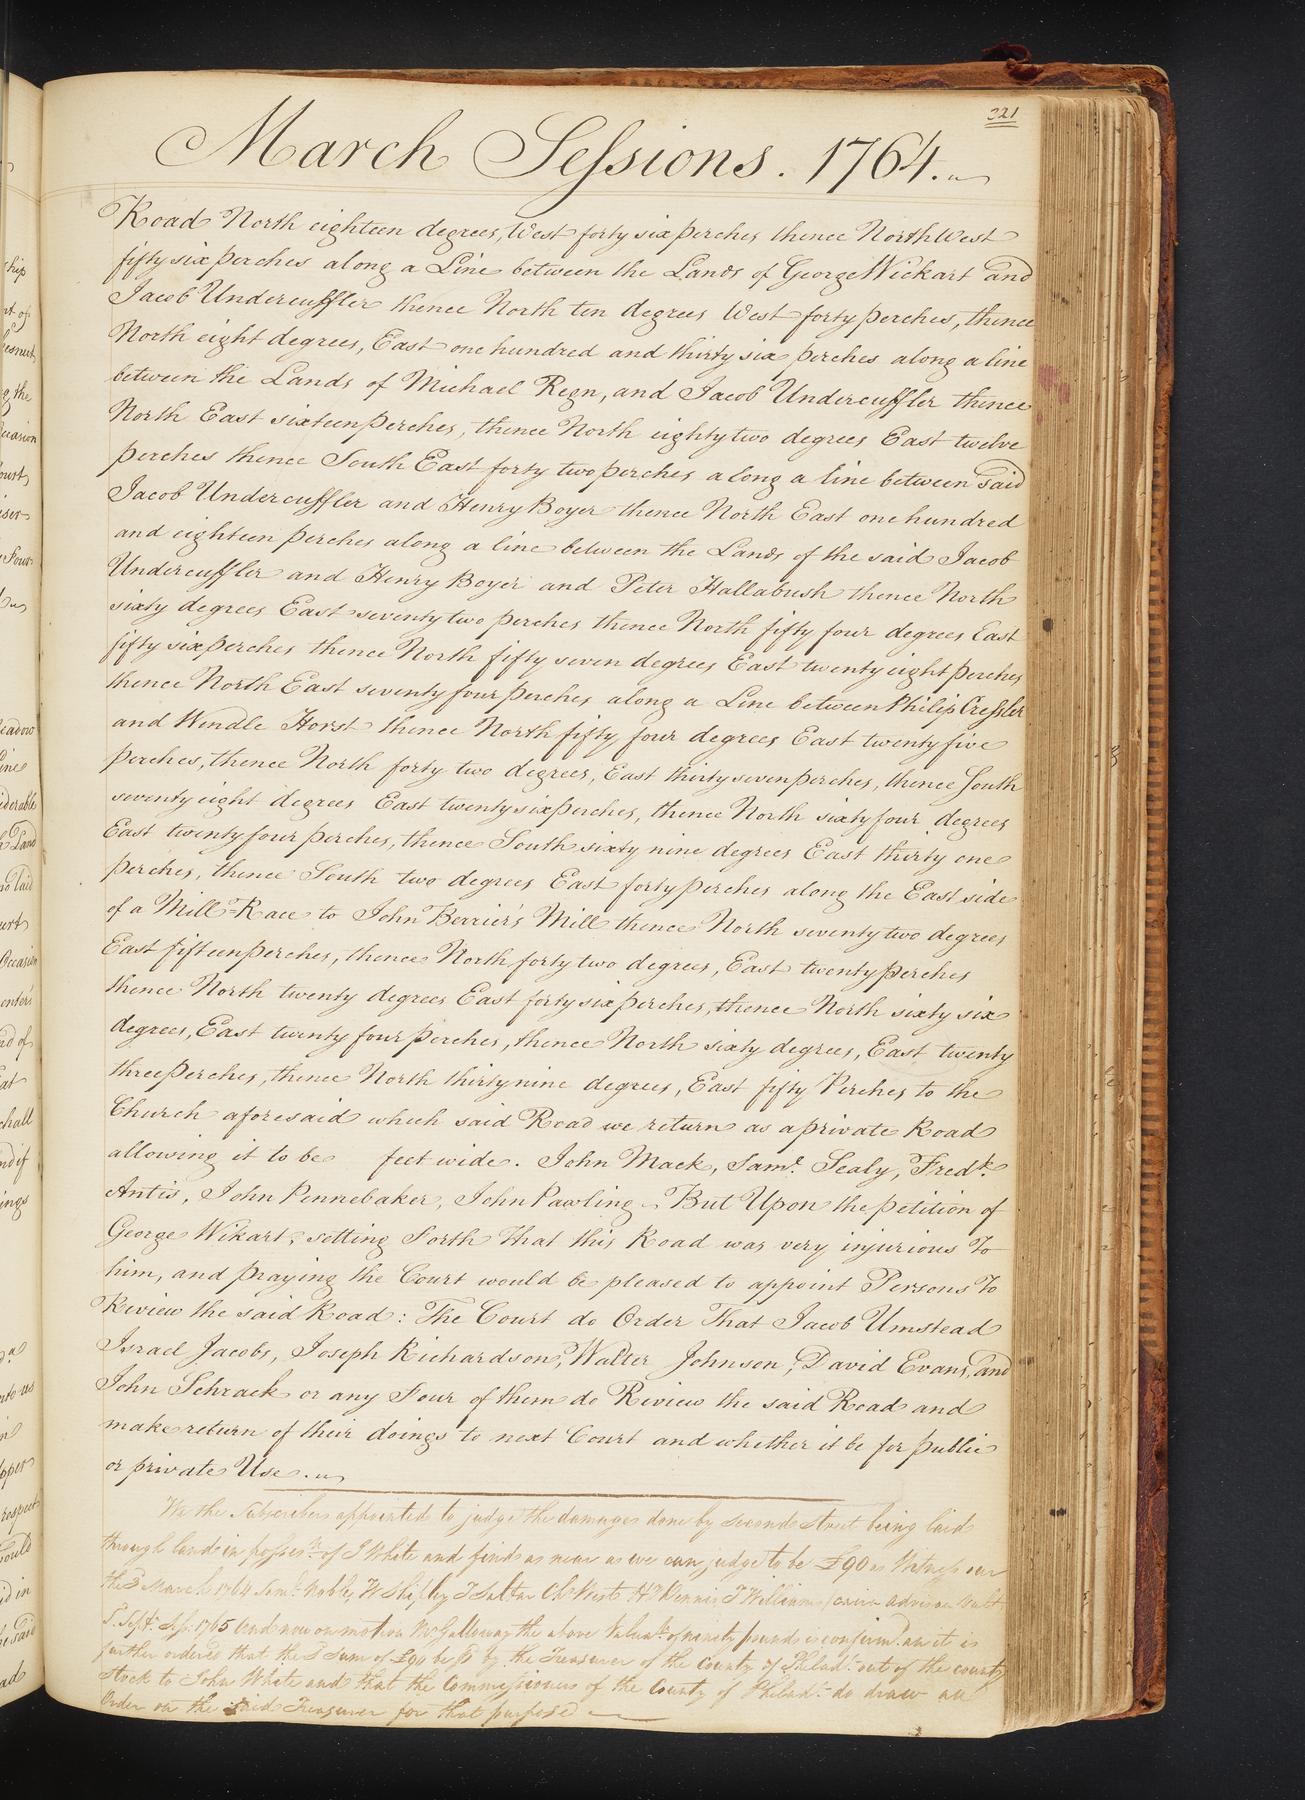 321
March Sessions. 1764.
Road North eighteen degrees, West forty six perches thence North West
fifty six perches along a Line between the Lands of George Wickart and
Jacob Undercuffler thence North ten degrees West forty perches, thence
North eight degrees, East one hundred and thirty six perches along a line
between the Lands of Michael Regn, and Jacob Undercuffler thence
North East sixteen perches, thence North eighty two degrees East twelve
perches thence South East forty two perches along a line between said
Jacob Undercuffler and Henry Boyer thence North East one hundred
and eighteen perches along a line between the Lands of the said Jacob
Undercuffler and Henry Boyer and Peter Hallabush thence North
sixty degrees East seventy two perches thence North fifty four degrees East
fifty six perches thence North fifty seven degrees East twenty eight perches
thence North East seventy four perches along a Line between Philip Cressler
and Windle Horst thence North fifty four degrees East twenty five
perches, thence North forty two degrees, East thirty seven perches, thence South
seventy eight degrees East twenty six perches, thence North sixty four degrees
East twenty four perches, thence South sixty nine degrees East thirty one
perches, thence South two degrees East forty perches along the East side
of a Mill=Race to John Berrier's Mill thence North seventy two degrees
East fifteen perches, thence North forty two degrees, East twenty perches
thence North twenty degrees East forty six perches, thence North sixty six
degrees, East twenty four perches, thence North sixty degrees, East twenty
three perches, thence North thirty nine degrees, East fifty Perches to the
Church aforesaid which said Road we return as a private Road
allowing it to be feet wide. John Mack, Saml. Sealy, Fredk.
Antis, John Pennebaker, John Pawling But Upon the petition of
George Wikart, setting Forth That this Road was very injurious To
him, and praying the Court would be pleased to appoint Persons To
Review the said Road: The Court do Order That Jacob Umstead
Israel Jacobs, Joseph Richardson, Walter Johnson, David Evans, and
John Schrack or any Four of them do Riview the said Road and
make return of their doings to next Court and whether it be for public
or private Use.
We the Subscribers appointed to judge the damages done by second street being laid
through lands in possesn. of J White and finds as near as we can judge to be £90 as Witness our
the 3 March 1764 Saml. Noble, W Shipley J Saltar Chs West Hy Dennis J Williams
S. Sept. Ss. 1765 And now on motion Mr Galloway the above Valuatn. of ninety pounds is confirmd. an it is
further ordered that the sd Sum of £90 be pd by the Treasurer of the County of Philada. out of the county
Stock to John White and that the Commissioners of the County of Philada. do draw an
Order on the said Treasurer for that purpose